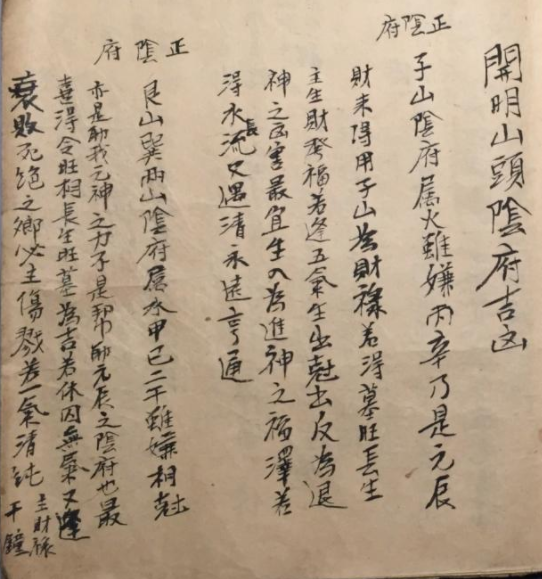 開明山頭陰府吉凶
正陰府
子山陰府属火雖嫌丙辛乃是元辰
財未得用子山為財祿若得墓旺長生
主生財發福若逢五氣生出尅出反為退
神之官害最宜生入為進神之福澤若
得水流長又遇清永遠亨通
正陰府
艮山巽两山陰府属水甲己二干雖嫌相尅
亦是助我元神之力于是帮助元辰之陰府也最
喜得令旺相長生旺墓為吉若休囚無氣又逢
衰敗死絶之鄉必主傷戮若一氣清純主財祿千鐘